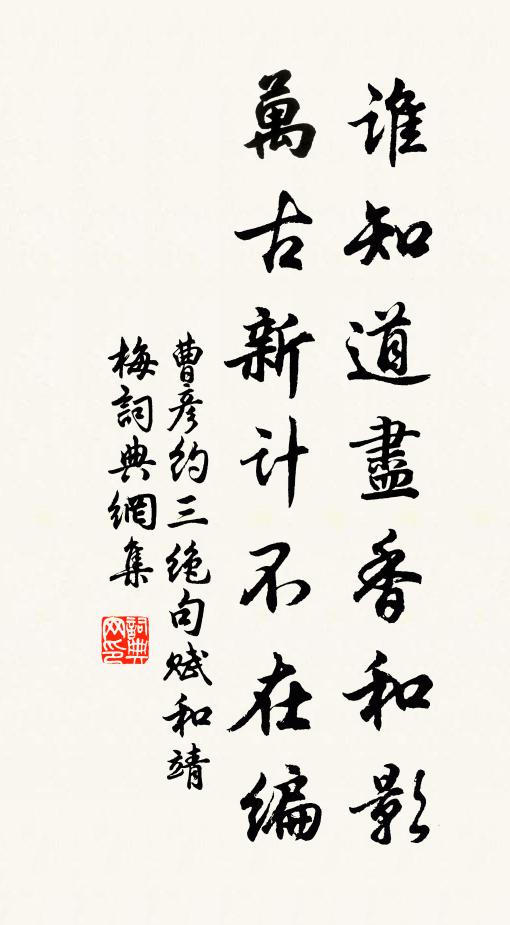 誰知道盡香和影
萬古新计不在编
曹彦约三绝句赋和靖
梅詞典網集
詞典网印